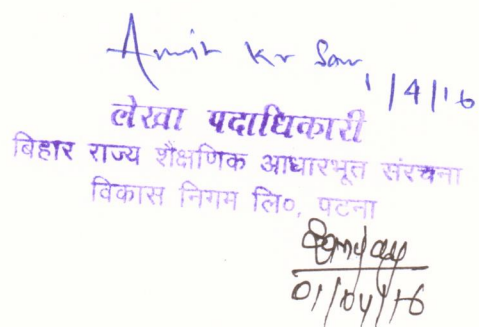 Amit Kr Sav
1/4/16
लेखा पदाधिकारी
बिहार राज्य शैक्षणिक आधारभूत संरचना
विकास निगम लि०, पटना
01/04/16